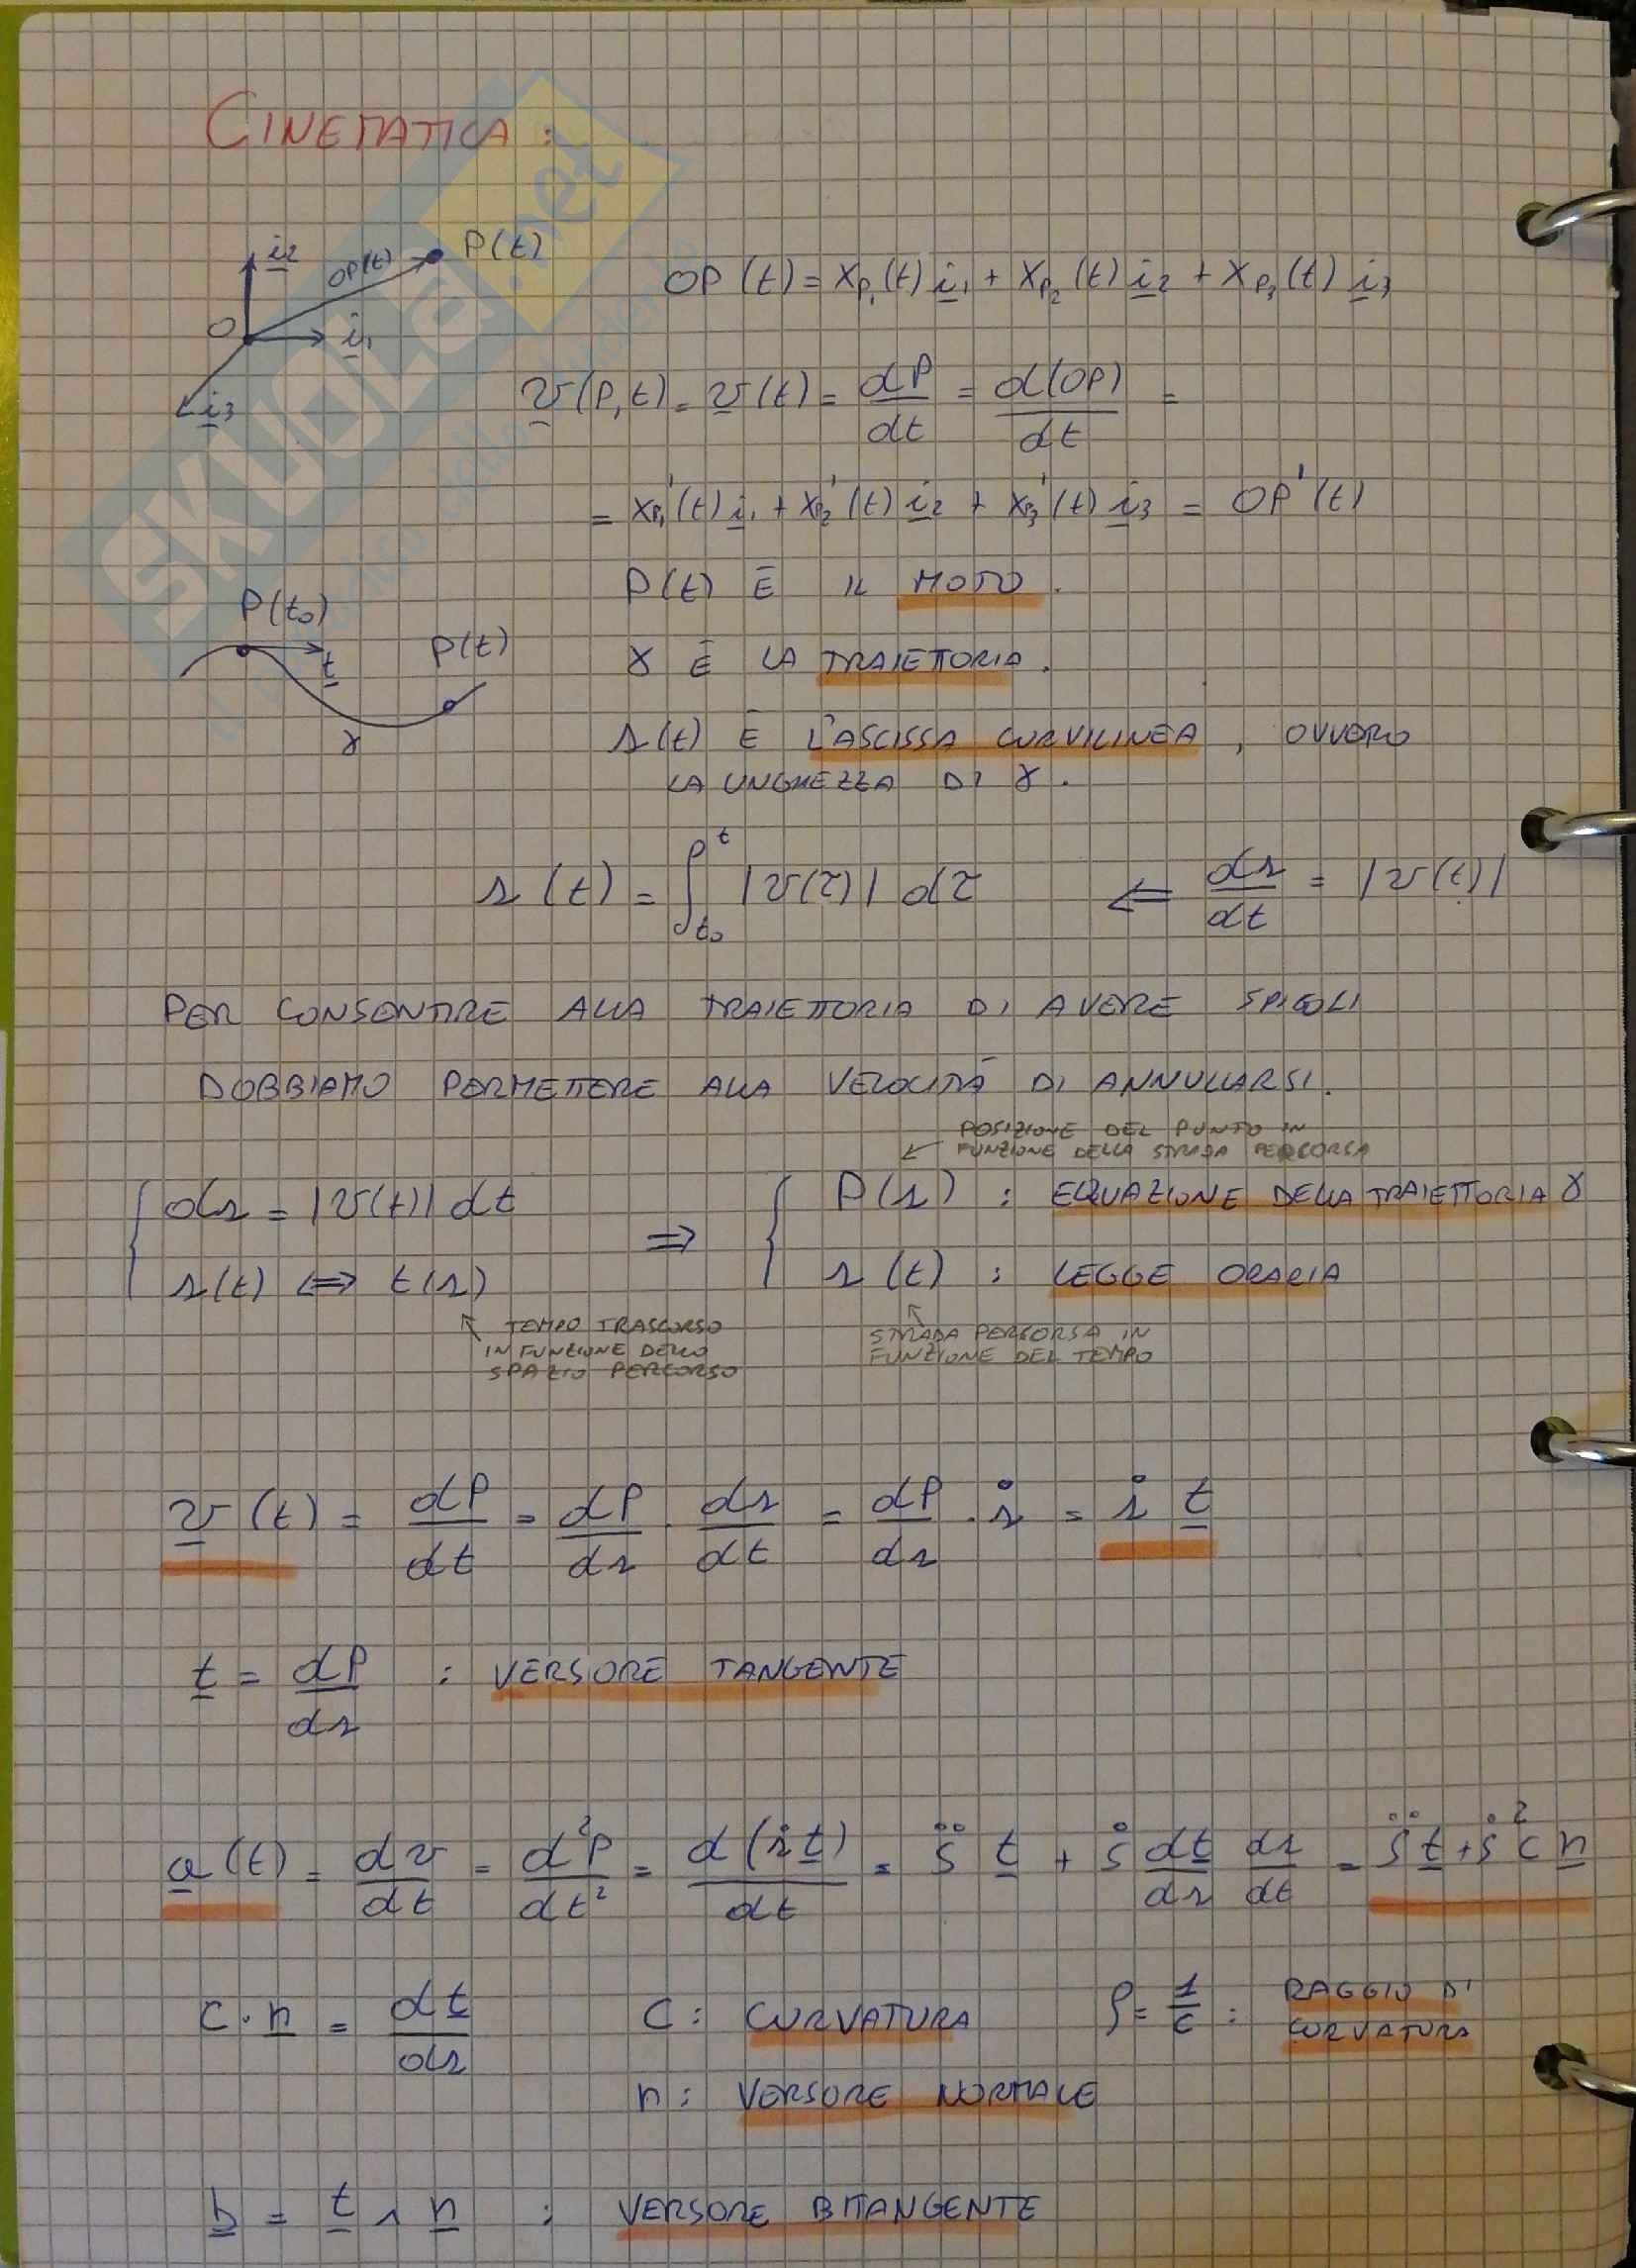 CINEMATICA:
i2
OP(t)
P(t)
O
i1
i3
OP(t) = xP1(t) i1 + xP2(t) i2 + xP3(t) i3
v(P,t) = v(t) = dP/dt = d(OP)/dt =
= xP1'(t) i1 + xP2'(t) i2 + xP3'(t) i3 = OP'(t)
P(t) È IL MOTO.
P(t0)
t
P(t)
γ
γ È LA TRAIETTORIA.
s(t) È L'ASCISSA CURVILINEA, OVVERO
LA LUNGHEZZA DI γ.
s(t) = ∫t0^t |v(τ)| dτ ⇐ ds/dt = |v(t)|
PER CONSENTIRE ALLA TRAIETTORIA DI AVERE SPIGOLI
DOBBIAMO PERMETTERE ALLA VELOCITÀ DI ANNULLARSI.
POSIZIONE DEL PUNTO IN
FUNZIONE DELLA STRADA PERCORSA
{ ds = |v(t)| dt ⇒ { P(s) : EQUAZIONE DELLA TRAIETTORIA γ
s(t) ⇔ t(s) s(t) : LEGGE ORARIA
TEMPO TRASCORSO
IN FUNZIONE DELLO
SPAZIO PERCORSO
STRADA PERCORSA IN
FUNZIONE DEL TEMPO
v(t) = dP/dt = dP/ds · ds/dt = dP/ds · ṡ = ṡ t
t = dP/ds : VERSORE TANGENTE
a(t) = dv/dt = d²P/dt² = d(ṡt)/dt = s̈ t + ṡ dt/ds ds/dt = s̈ t + ṡ² c n
c · n = dt/ds C: CURVATURA ρ = 1/c : RAGGIO DI
CURVATURA
n: VERSORE NORMALE
b = t ∧ n : VERSORE BITANGENTE
SKUOLA.net